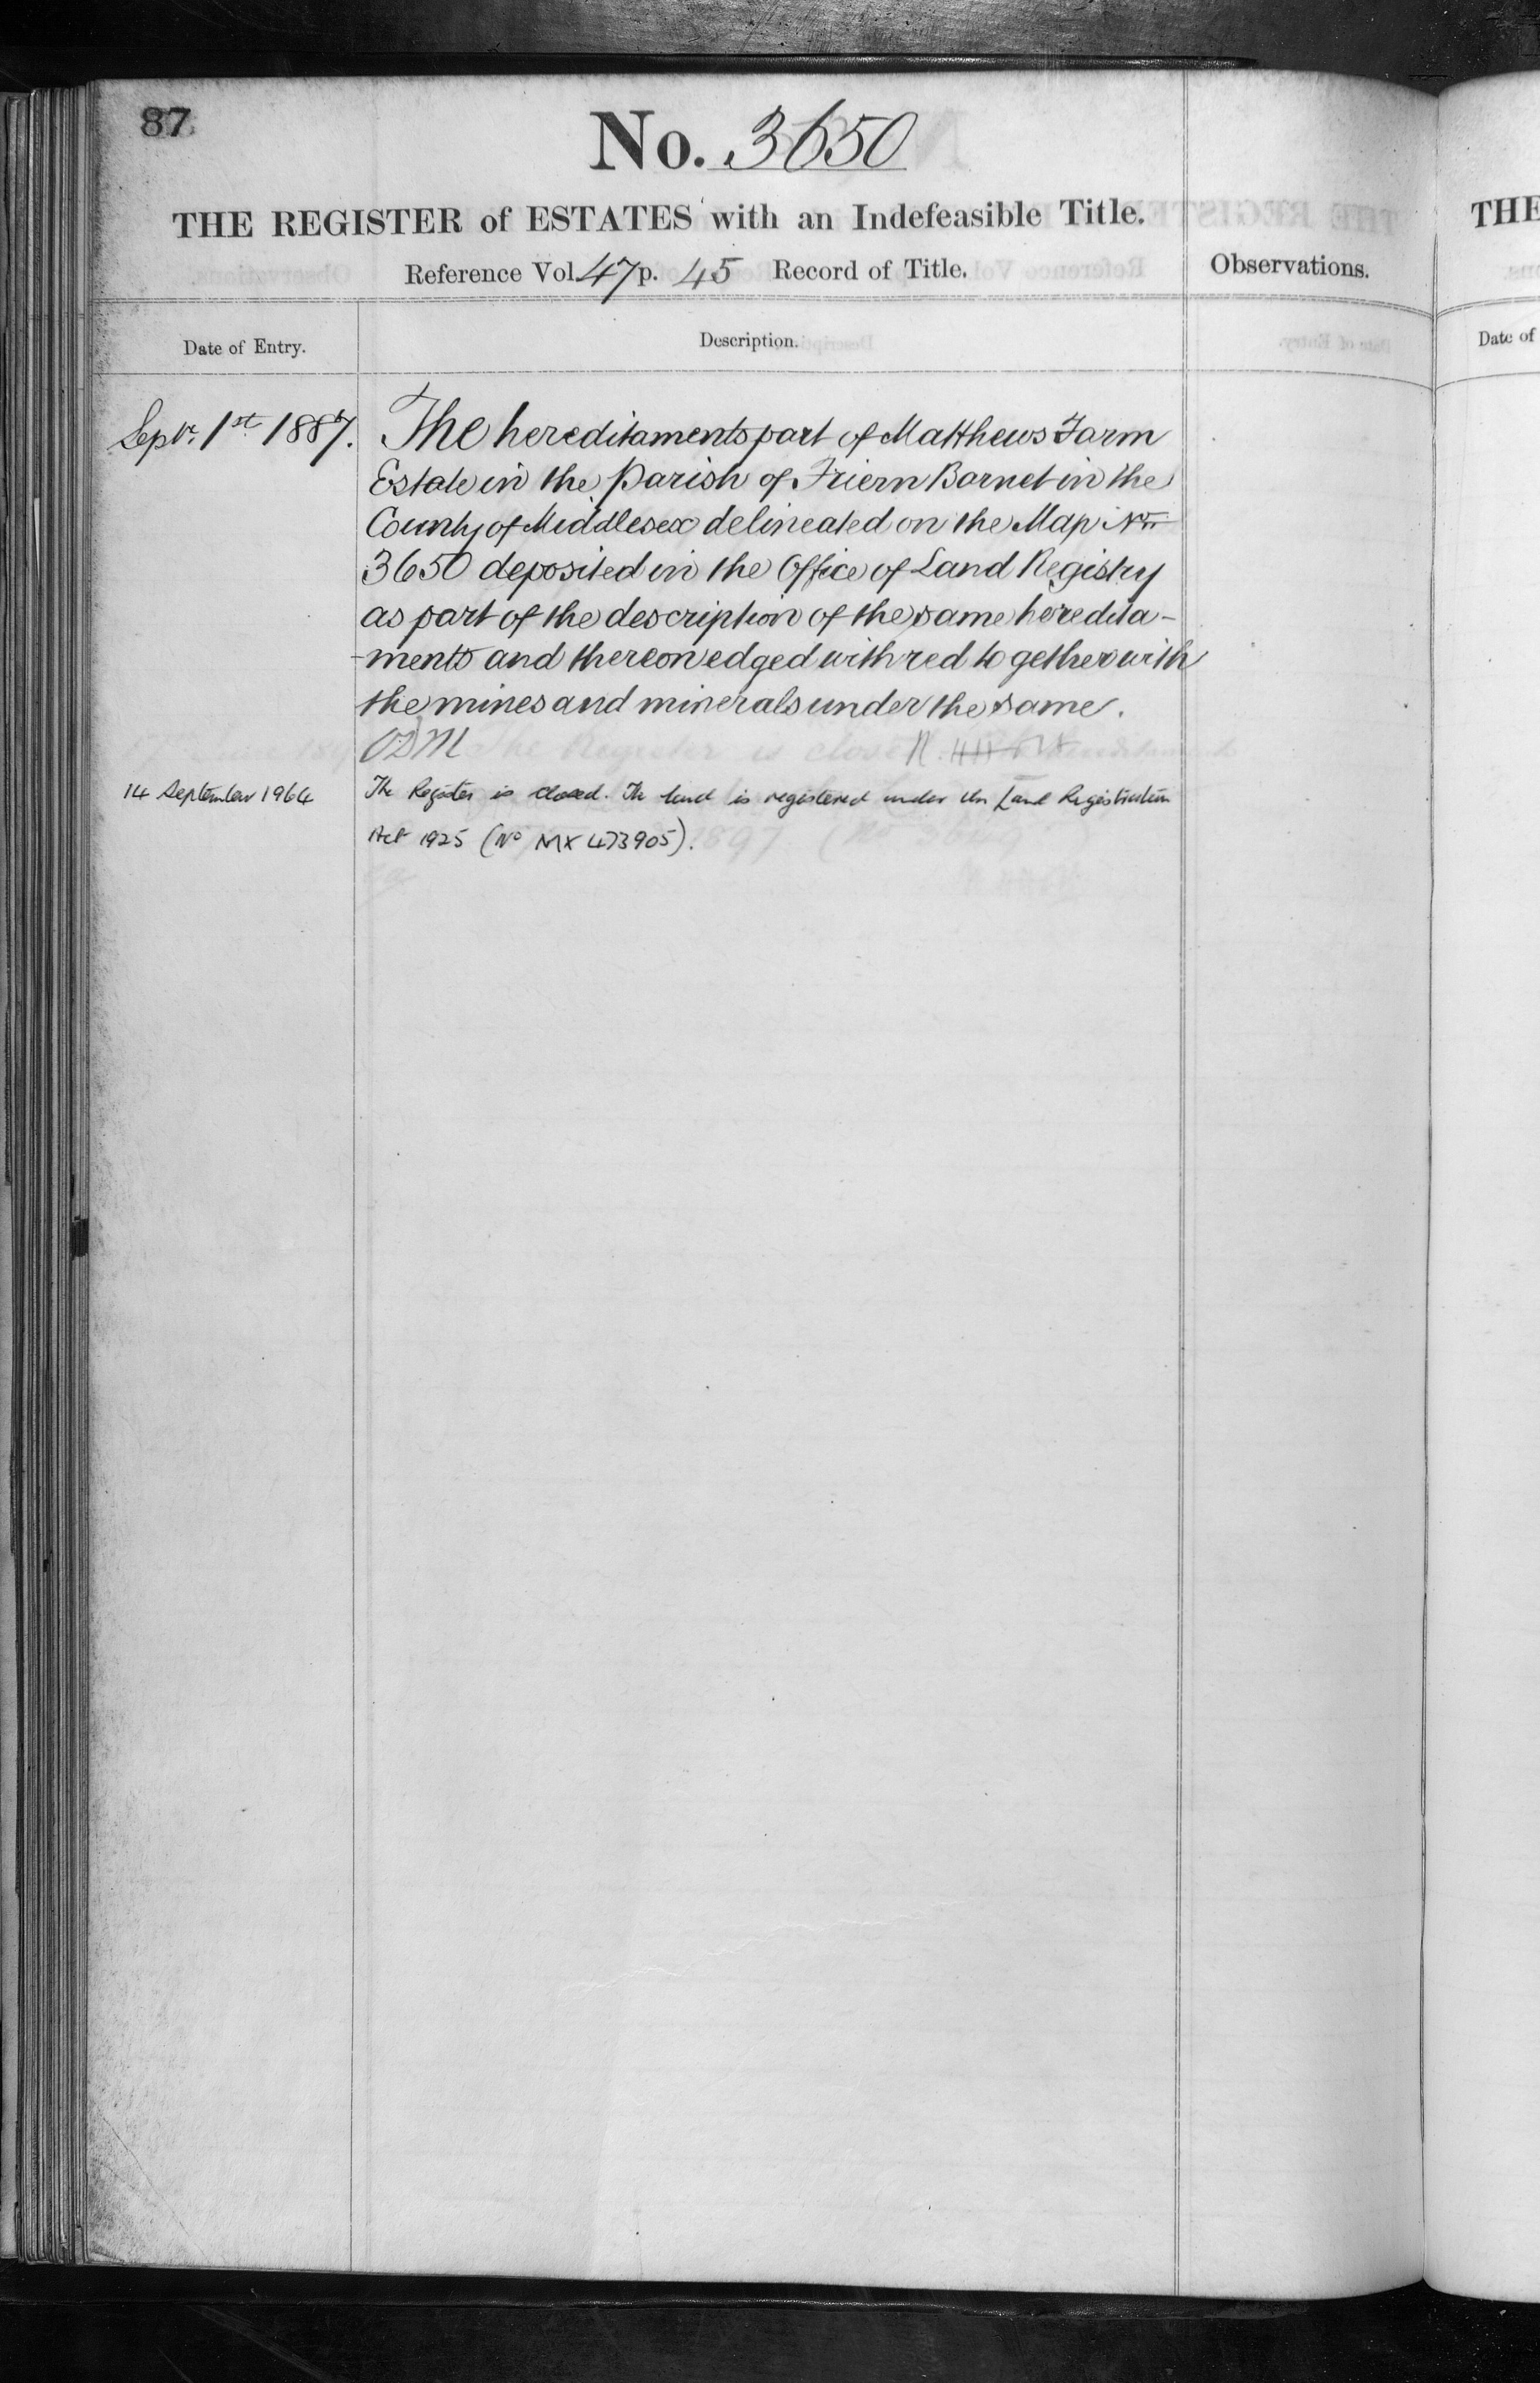 87
No. 3650
THE REGISTER of ESTATES with an Indefeasible Title.
Reference Vol. 47 p. 45 Record of Title.
Observations.
Date of Entry.
Description.
Septr. 1st 1887. The hereditaments part of Matthews Farm
Estate in the Parish of Friern Barnet in the
County of Middlesex delineated on the Map No.
3650 deposited in the Office of Land Registry
as part of the description of the same heredita-
-ments and thereon edged with red together with
the mines and minerals under the same.
14 September 1964 The Register is closed. The land is registered under the Land Registration
Act 1925 (No MX 473905).
THE
Date of